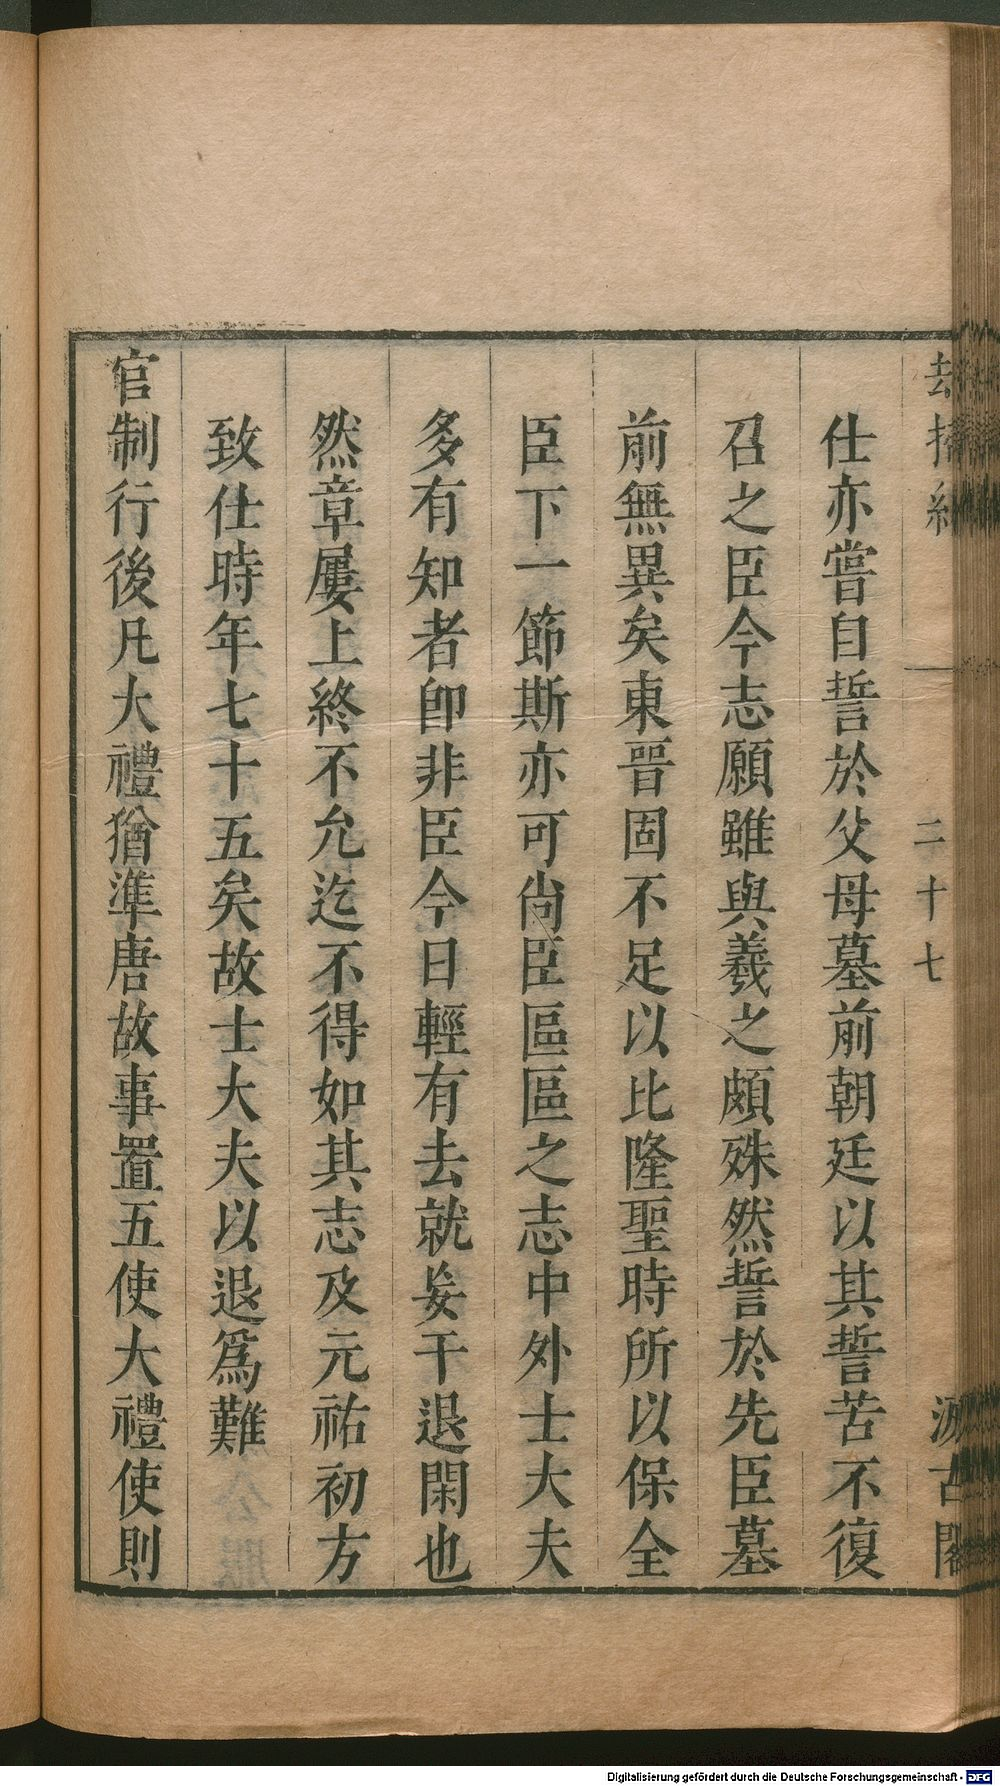 却掃編
二十七
汲古閣
仕亦嘗自誓於父母墓前朝廷以其誓苦不復
召之臣今志願雖與羲之頗殊然誓於先臣墓
前無異矣東晉固不足以比隆聖時所以保全
臣下一節斯亦可尙臣區區之志中外士大夫
多有知者卽非臣今日輕有去就妄干退閑也
然章屢上終不允迄不得如其志及元祐初方
致仕時年七十五矣故士大夫以退爲難
官制行後凡大禮猶準唐故事置五使大禮使則
Digitalisierung gefördert durch die Deutsche Forschungsgemeinschaft - DFG